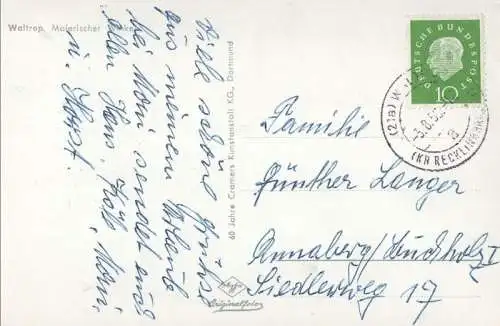 Waltrop, Malerischer Winkel
Viele schöne Grüße
aus meinem Urlaub
bei Moni sendet euch
allen Hans, Moni,
u. Horst.
60 Jahre Cramers Kunstanstalt KG., Dortmund
Originalfoto
DEUTSCHE BUNDESPOST
10
(21a)
(KR RECKLINGH
Familie
Günther Langer
Annaberg/Buchholz I
Siedlerweg 17